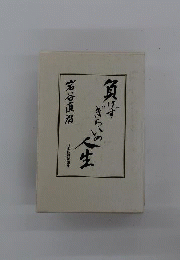 負けず
ぎらいの
人生
岩谷直治